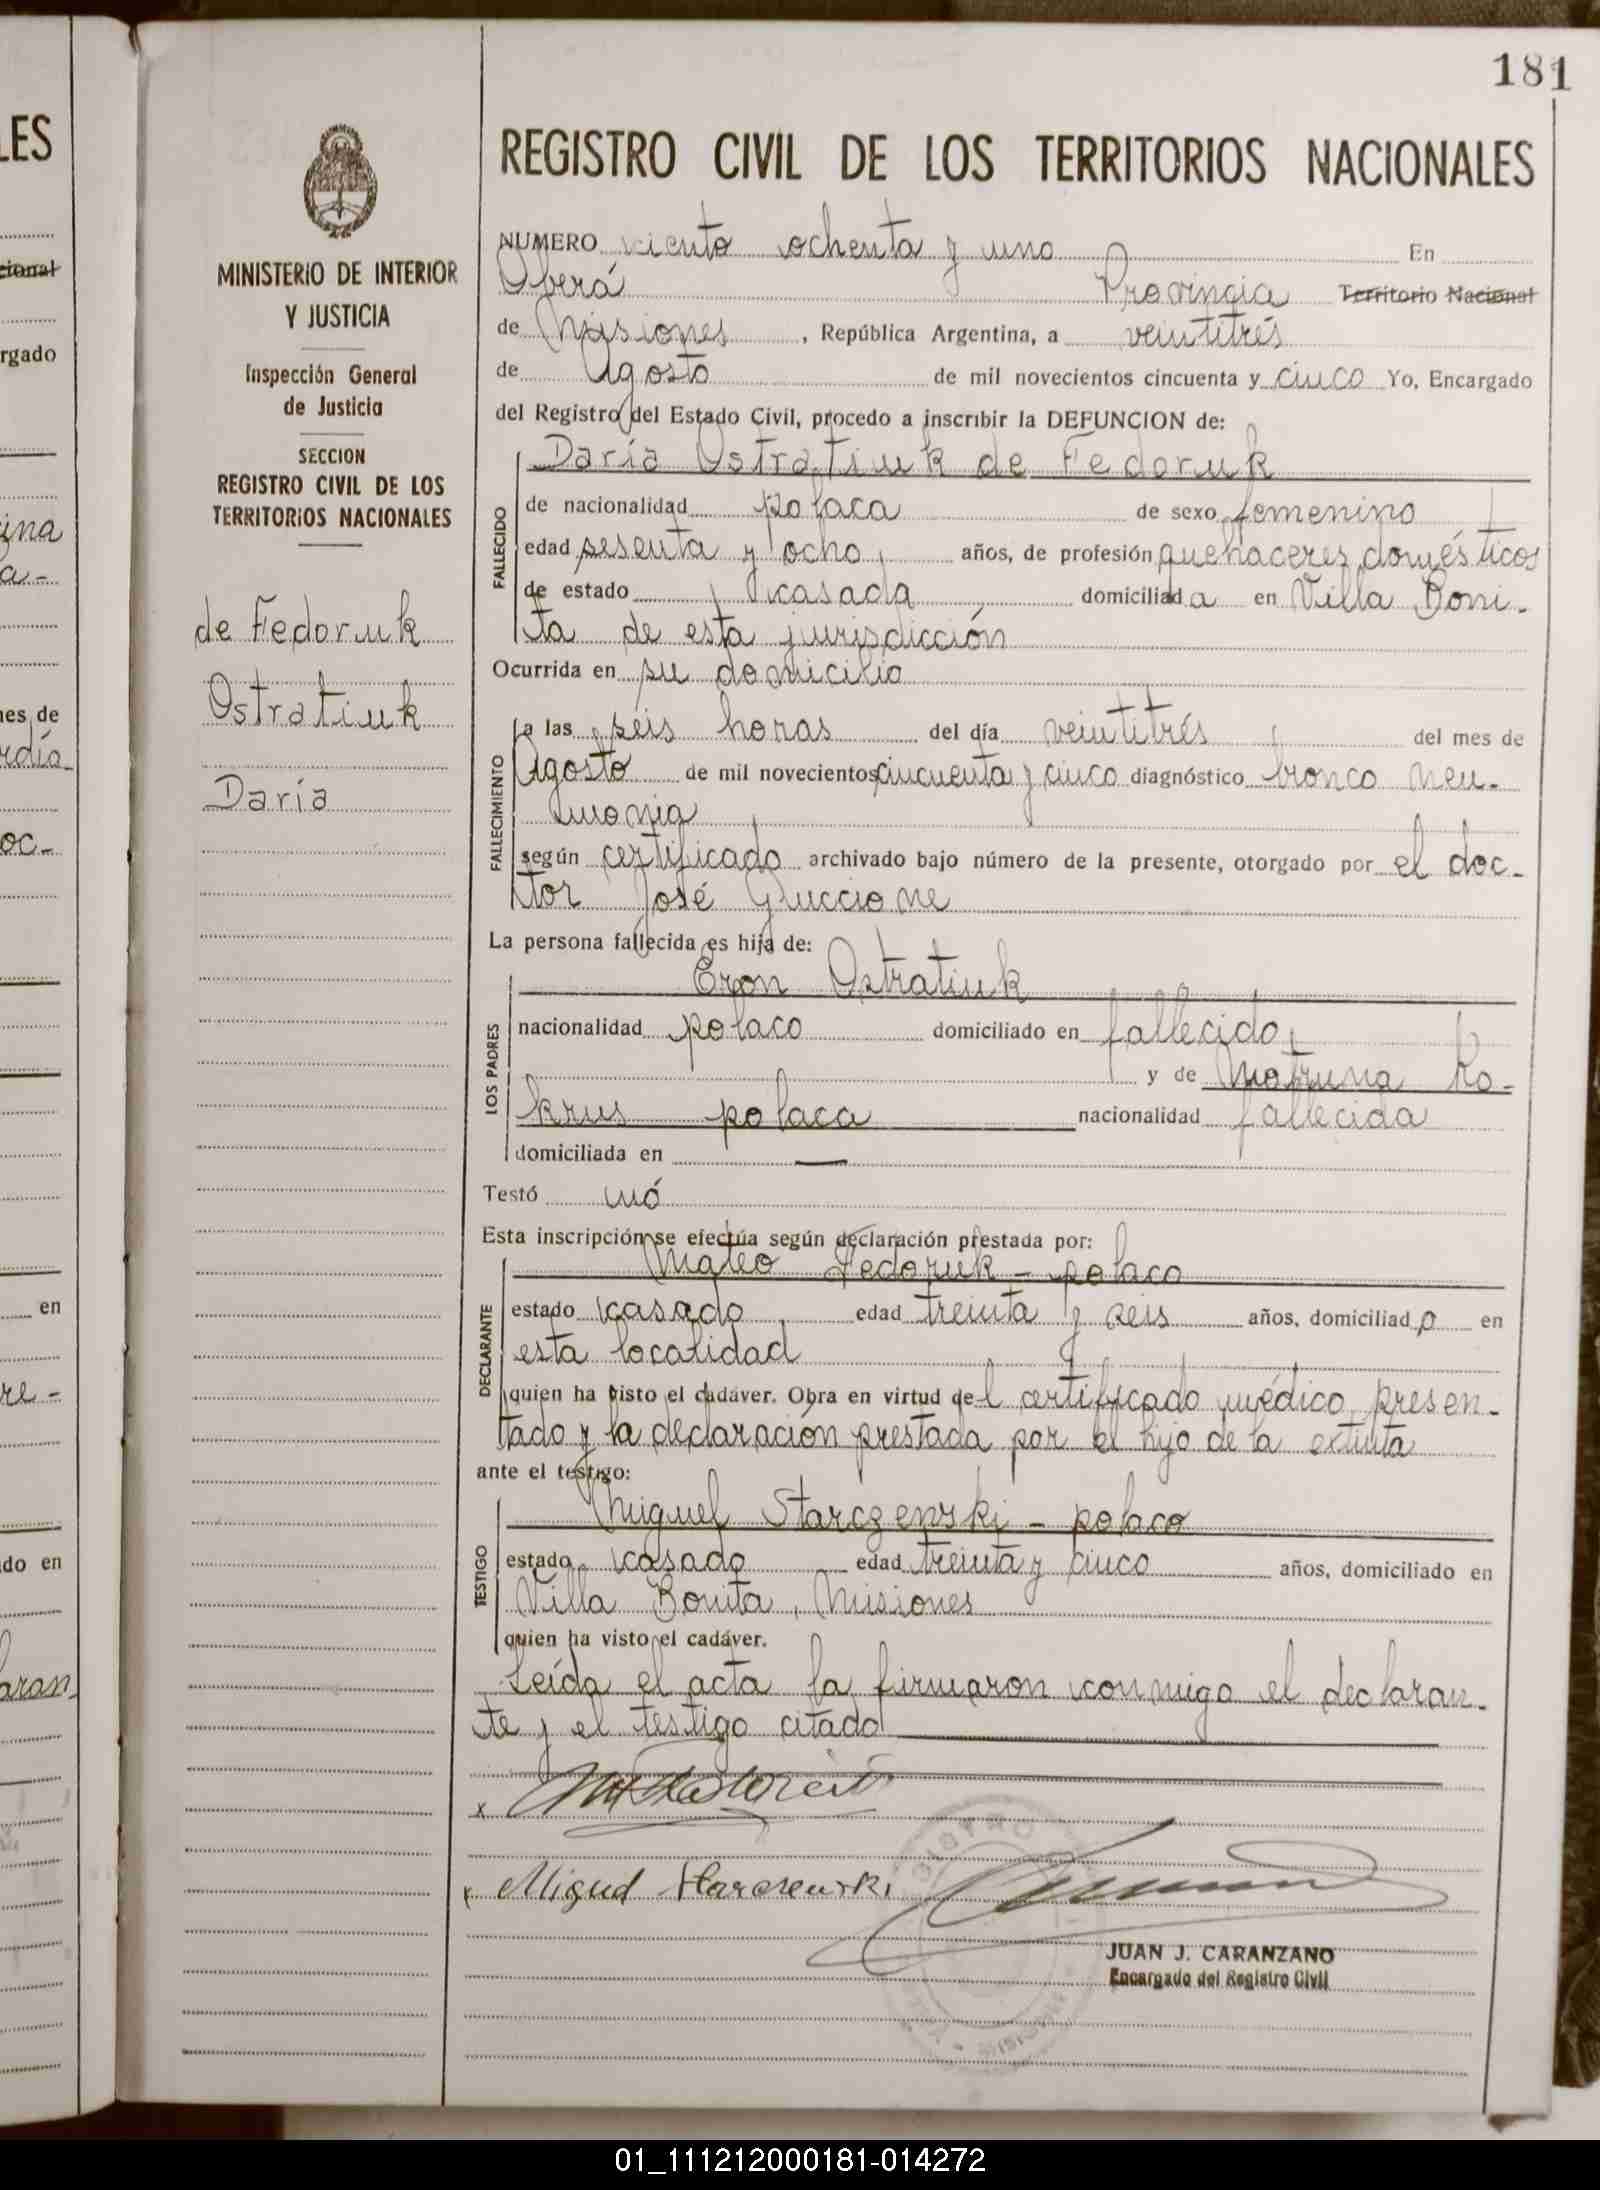 181
REGISTRO CIVIL DE LOS TERRITORIOS NACIONALES
MINISTERIO DE INTERIOR
Y JUSTICIA
Inspección General
de Justicia
SECCION
REGISTRO CIVIL DE LOS
TERRITORIOS NACIONALES
de Fedoruk
Ostratiuk
Daría
NUMERO ciento ochenta y uno En
Oberá Provincia Territorio Nacional
de Misiones, República Argentina, a veintitrés
de Agosto de mil novecientos cincuenta y cinco Yo, Encargado
del Registro del Estado Civil, procedo a inscribir la DEFUNCION de:
Daría Ostratiuk de Fedoruk
FALLECIDO
de nacionalidad polaca de sexo femenino
edad sesenta y ocho años, de profesión quehaceres domésticos
de estado casada domiciliada en Villa Boni-
ta de esta jurisdicción
Ocurrida en su domicilio
FALLECIMIENTO
a las seis horas del día veintitrés del mes de
Agosto de mil novecientos cincuenta y cinco diagnóstico bronco neu-
monia
según certificado archivado bajo número de la presente, otorgado por el doc-
tor José Guccione
La persona fallecida es hija de:
LOS PADRES
Eron Ostratiuk
nacionalidad polaco domiciliado en fallecido
y de Matruna Ko-
krus polaca nacionalidad fallecida
domiciliada en —
Testó nó
Esta inscripción se efectúa según declaración prestada por:
DECLARANTE
Mateo Fedoruk - polaco
estado casado edad treinta y seis años, domiciliado en
esta localidad
quien ha visto el cadáver. Obra en virtud del certificado médico presen-
tado y la declaración prestada por el hijo de la extinta
ante el testigo:
TESTIGO
Miguel Starczenski - polaco
estado casado edad treinta y cinco años, domiciliado en
Villa Bonita, Misiones
quien ha visto el cadáver.
Leída el acta la firmaron conmigo el declaran-
te y el testigo citado
x
x Miguel Starczewski
JUAN J. CARANZANO
Encargado del Registro Civil
01_111212000181-014272